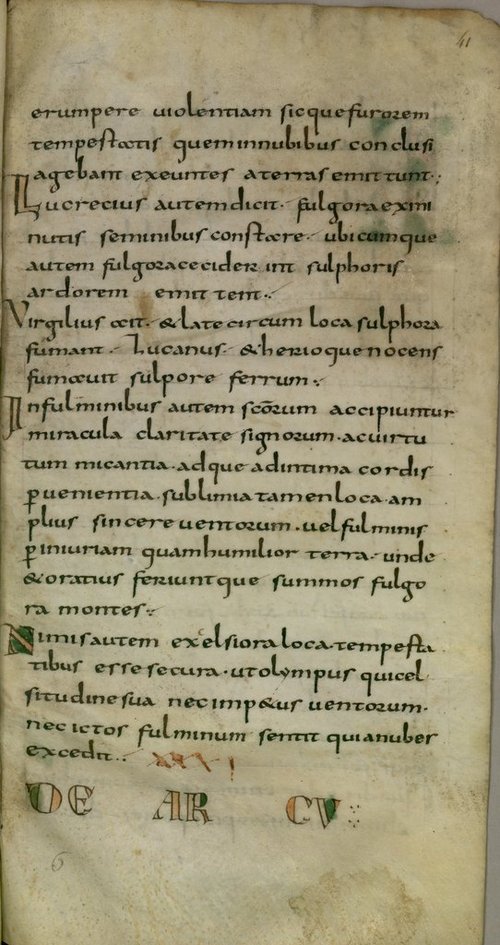 41
erumpere uiolentiam sicque furorem
tempestatis quem in nubibus conclusi
agebant exeuntes a terras emittunt.;
Lucrecius autem dicit. fulgora exmi
nutis seminibus constare. ubicumque
autem fulgora ceciderint sulphoris
ardorem emittent.
Virgilius ait. & late circum loca sulphora
fumant. Lucanus. & herioque nocens
fumauit sulpore ferrum.,
In fulminibus autem scōrum accipiuntur
miracula claritate signorum. ac uirtu
tum micantia. adque ad intima cordis
ꝑuenientia. sublimia tamen loca. am
plius sincere uentorum. uel fulminis
ꝑ iniuriam quam humilior terra. unde
& oratius feriuntque summos fulgo
ra montes.,
Nimis autem exelsiora loca. tempesta
tibus esse secura. ut olympus qui cel
situdine sua nec imp&us uentorum.
nec ictos fulminum sentit quia nuber
excedit.. XXXI
DE ARCV
6